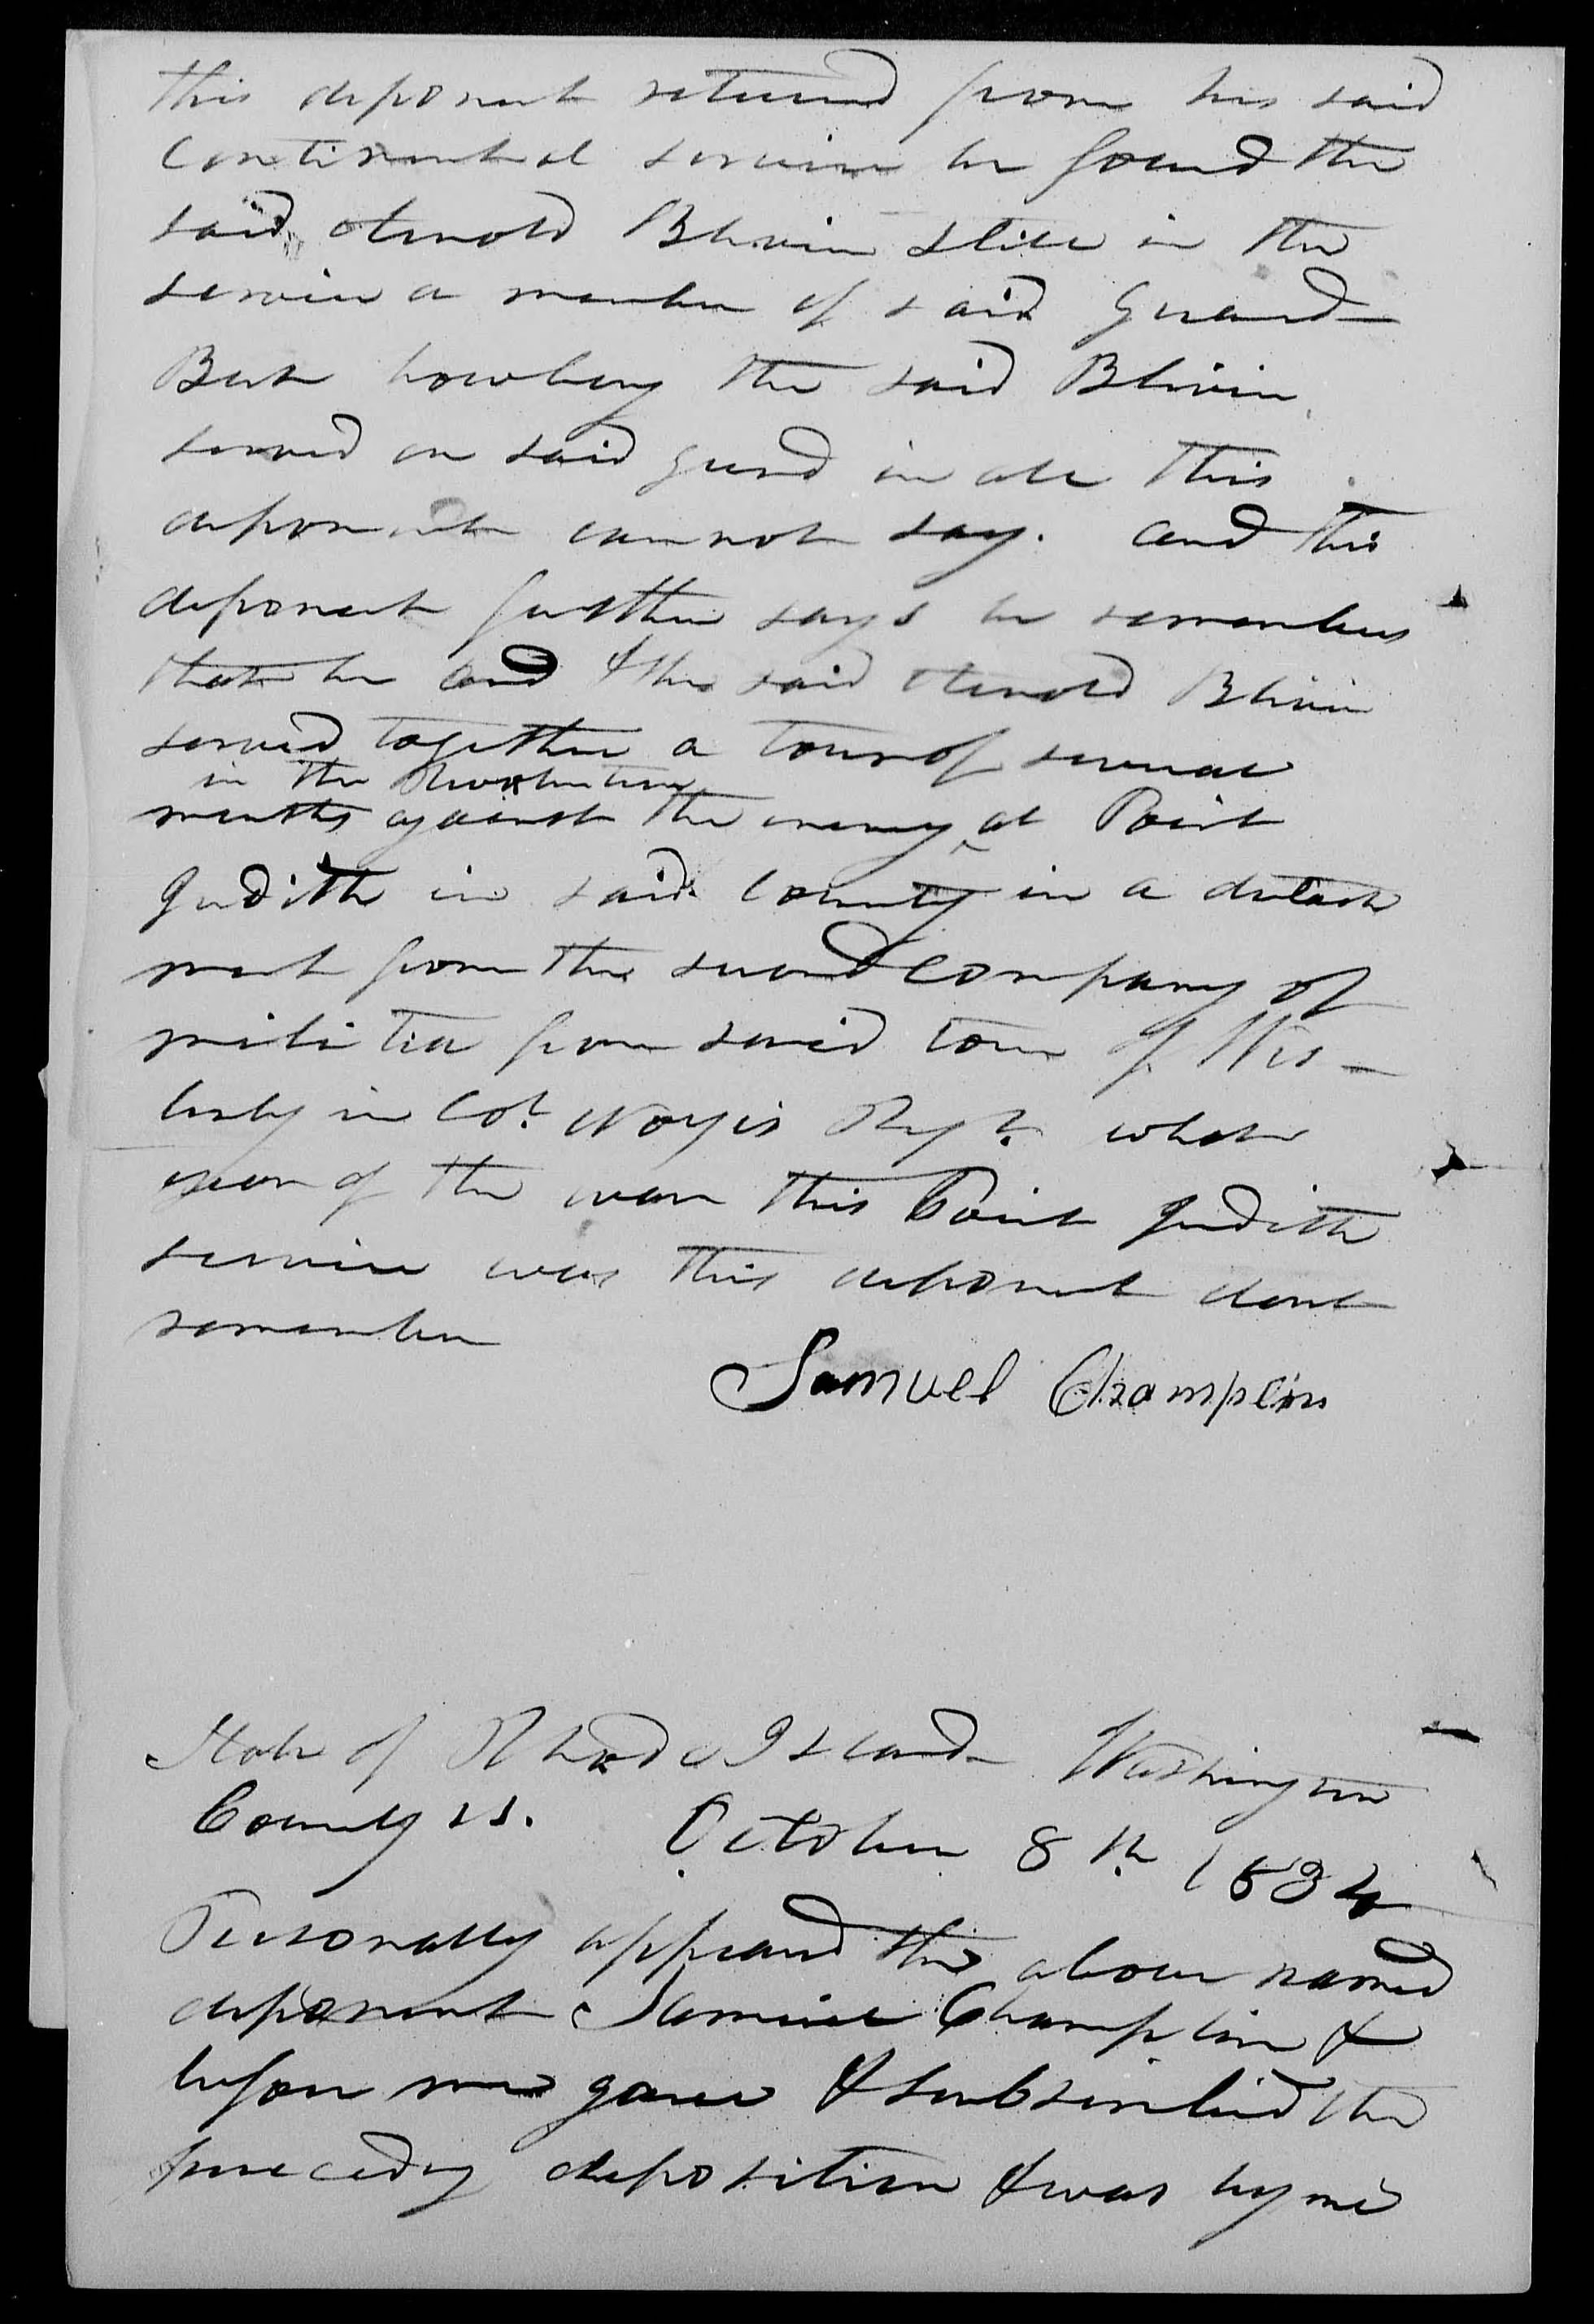 this deponent returned from his said
Continental service he found the
said Arnold Blivin still in the
service a member of said Guard—
But how long the said Blivin
served on said guard in all this
deponent cannot say. and this
deponent further says he remembers
that he and & the said Arnold Blivin
served together a tour of several
in the Revolution
months against the enemy ^ at Point
Judith in said County in a detach
ment from the second company of
militia from said town of Wes—
terly in Col. Noyes Regt. what
year of the war this Point Judith
service was this deponent dont
remember
Samuel Champlin
State of Rhode Island Washington
County ss. October 8th 1834
Personally appeared the above named
deponent Samuel Champlin &
before me gave & subscribed the
preceding deposition & was by me